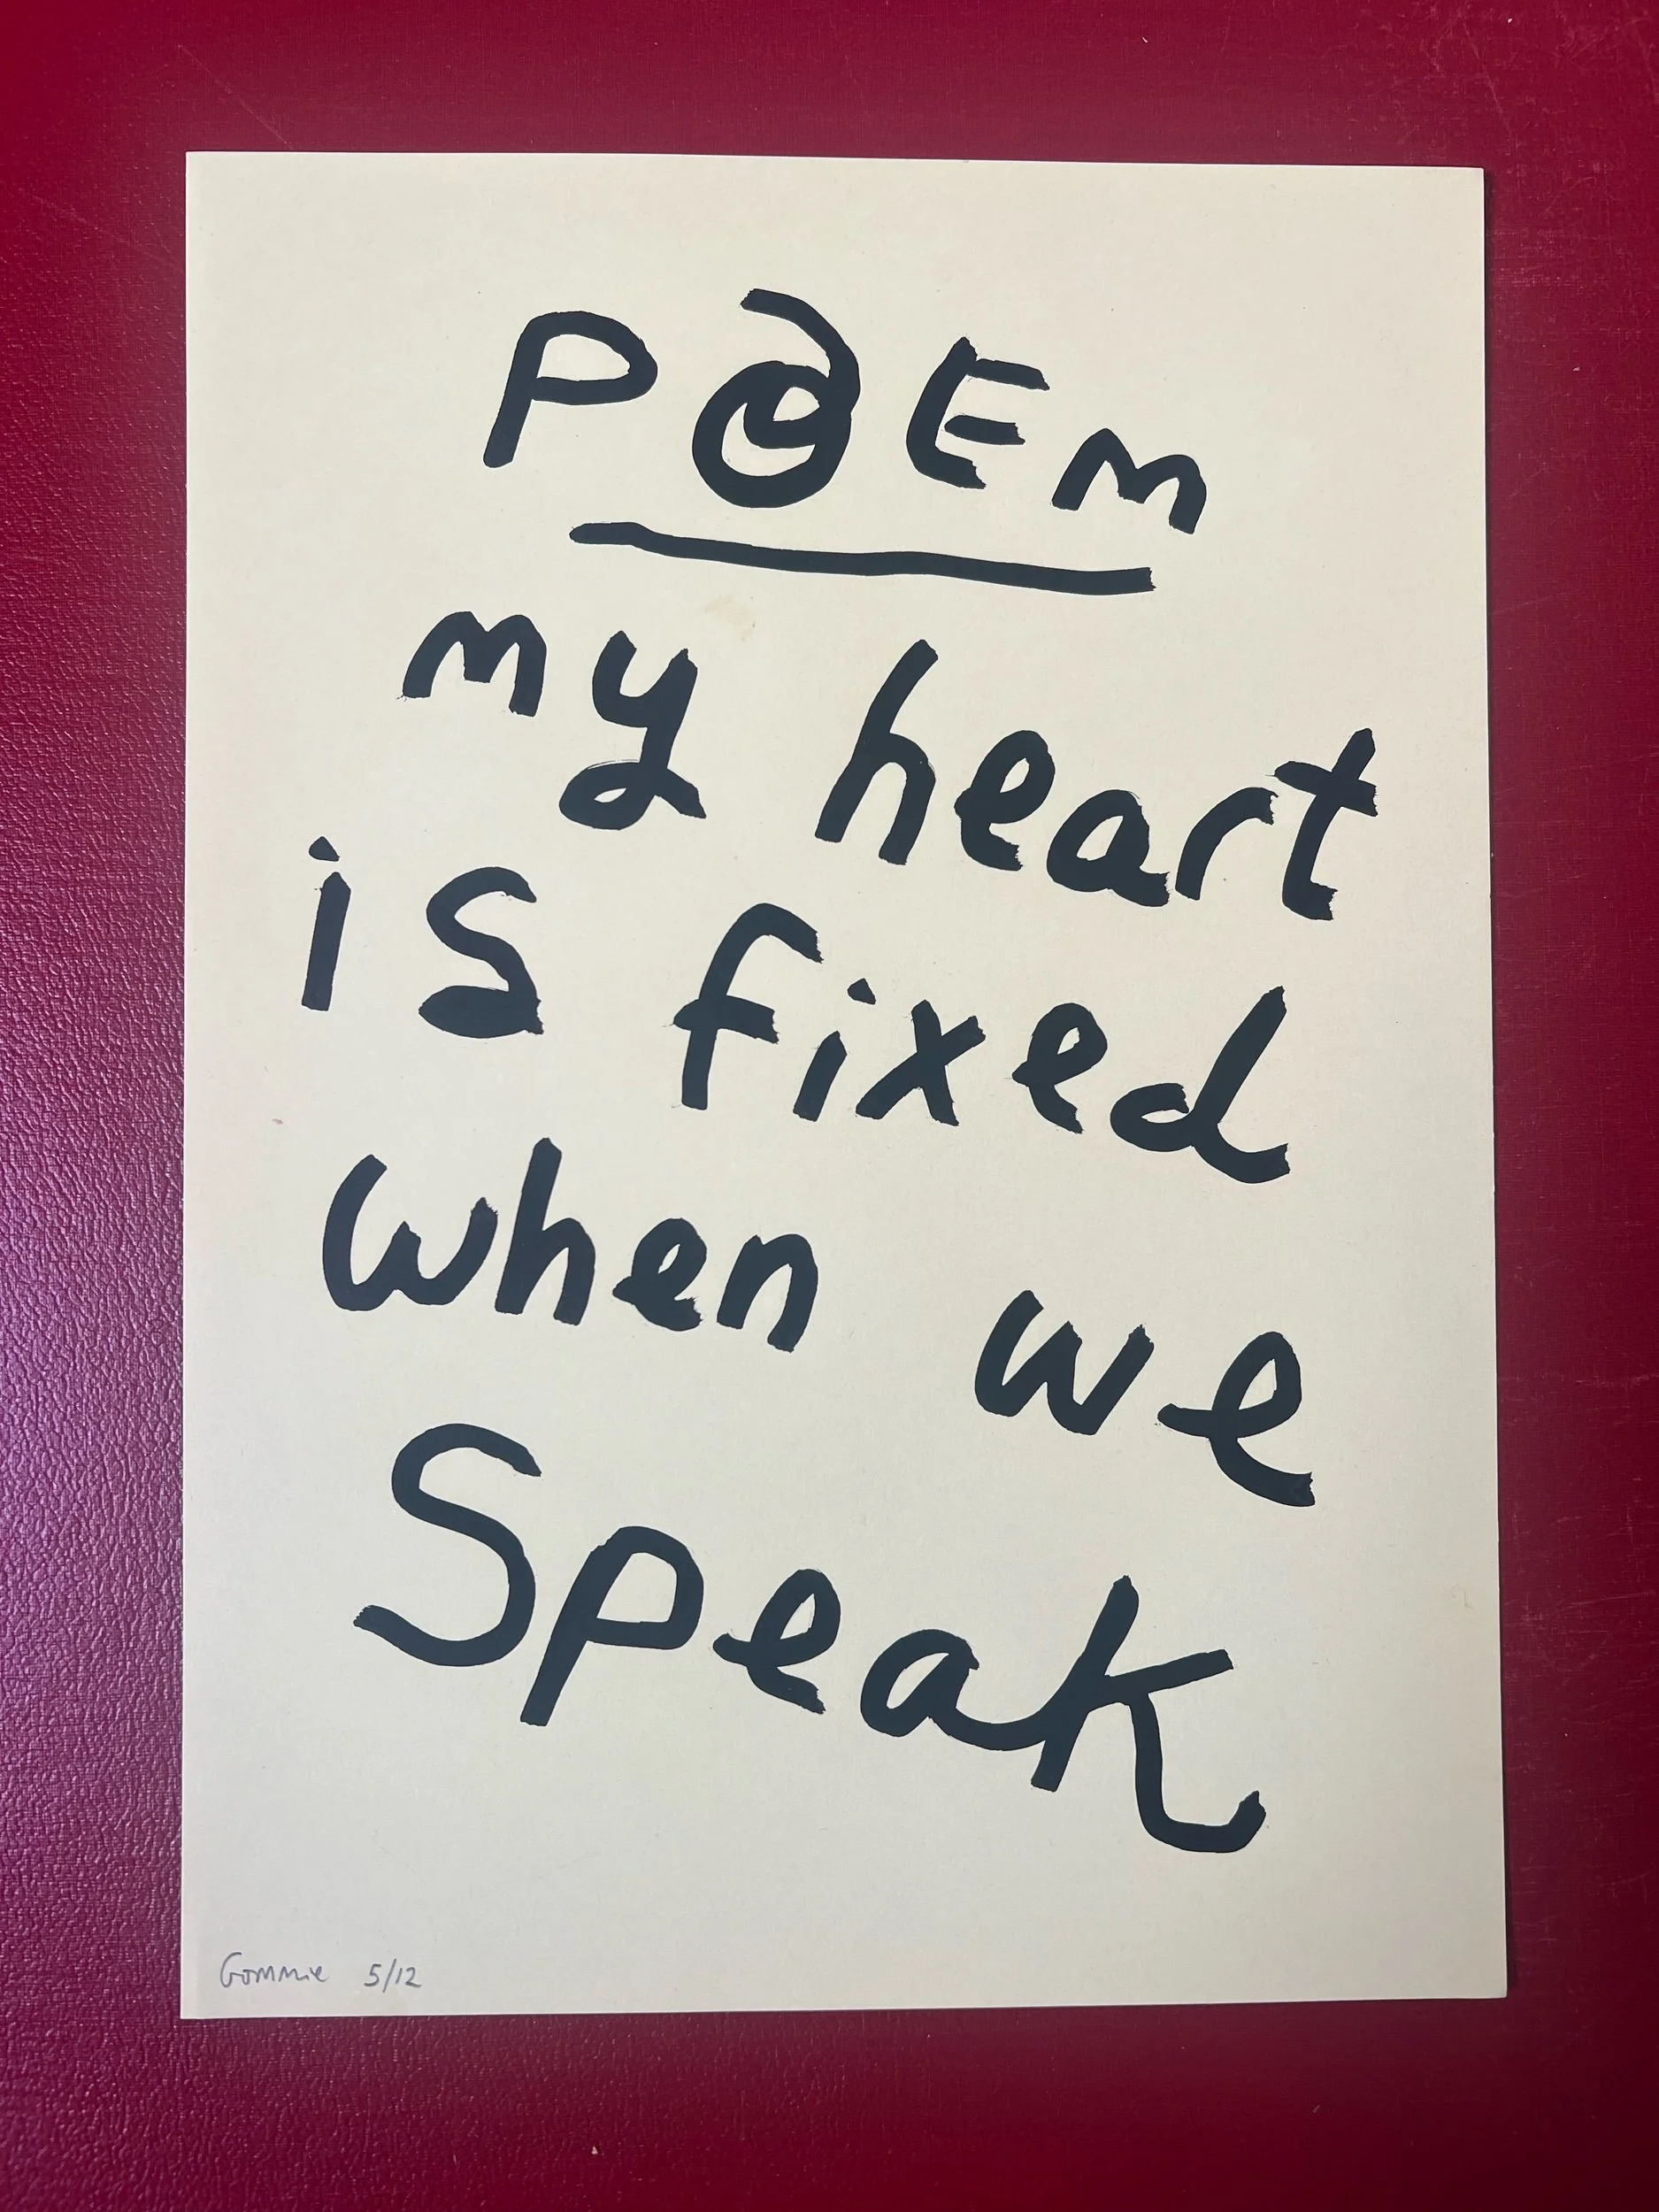 POEM
my heart
is fixed
when we
Speak
Gommie 5/12